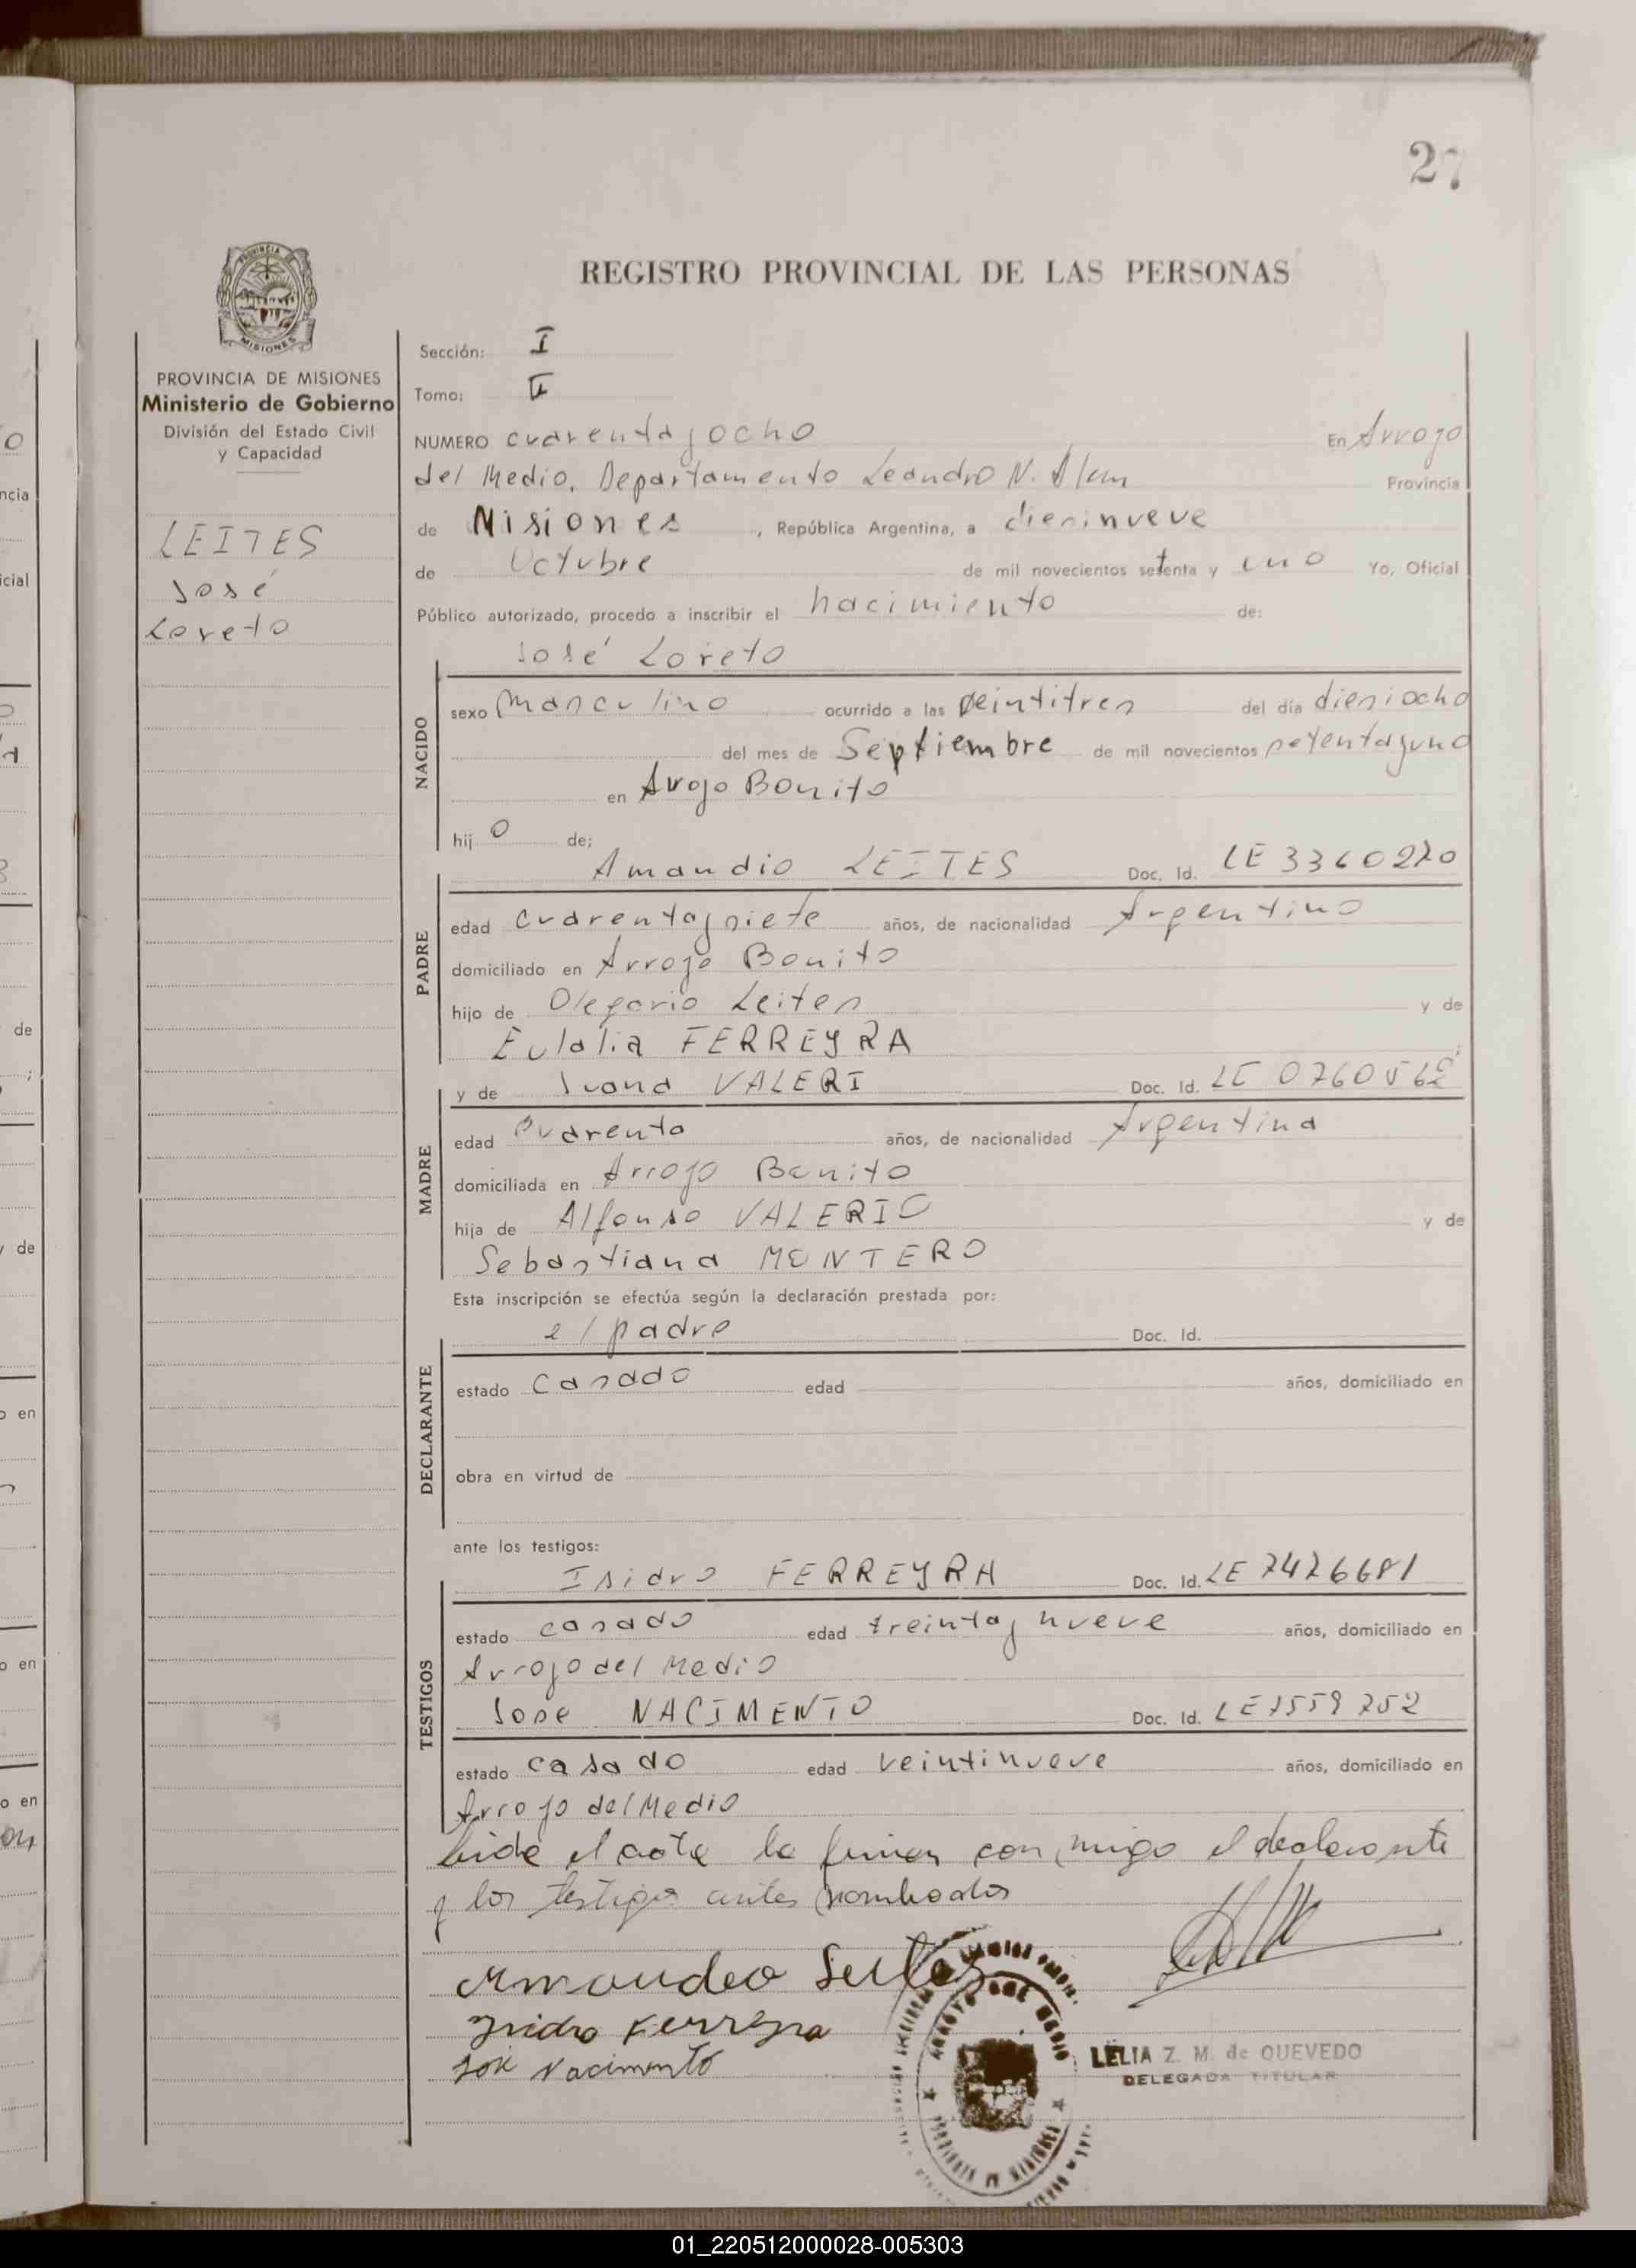 27
REGISTRO PROVINCIAL DE LAS PERSONAS
PROVINCIA DE MISIONES
Ministerio de Gobierno
División del Estado Civil
y Capacidad
LEITES
José
Loreto
Sección: I
Tomo: II
NUMERO cuarenta y ocho En Arroyo
del Medio, Departamento Leandro N. Alem Provincia
de Misiones, República Argentina, a diecinueve
de Octubre de mil novecientos setenta y uno Yo, Oficial
Público autorizado, procedo a inscribir el nacimiento de:
José Loreto
NACIDO
sexo masculino ocurrido a las veintitres del día dieciocho
del mes de Septiembre de mil novecientos setenta y uno
en Arroyo Bonito
hij o de;
PADRE
Amandio LEITES Doc. Id. LE 3360270
edad cuarenta y siete años, de nacionalidad Argentino
domiciliado en Arroyo Bonito
hijo de Olegario Leites y de
Eulalia FERREYRA
MADRE
y de Juana VALERI Doc. Id. LC
edad cuarenta años, de nacionalidad Argentina
domiciliada en Arroyo Bonito
hija de Alfonso VALERIO y de
Sebastiana MONTERO
Esta inscripción se efectúa según la declaración prestada por:
DECLARANTE
el padre Doc. Id.
estado casado edad años, domiciliado en
obra en virtud de
ante los testigos:
TESTIGOS
Isidro FERREYRA Doc. Id. LE 7476681
estado casado edad treinta y nueve años, domiciliado en
Arroyo del Medio
Jose NACIMENTO Doc. Id. LE 7559752
estado casado edad veintinueve años, domiciliado en
Arroyo del Medio
Leida el acta la firman conmigo el declarante
y los testigos antes nombrados
Amandeo Leites
Isidro Ferreyra
José Nacimento
ARROYO DEL MEDIO
LELIA Z. M. de QUEVEDO
DELEGADA TITULAR
01_220512000028-005303